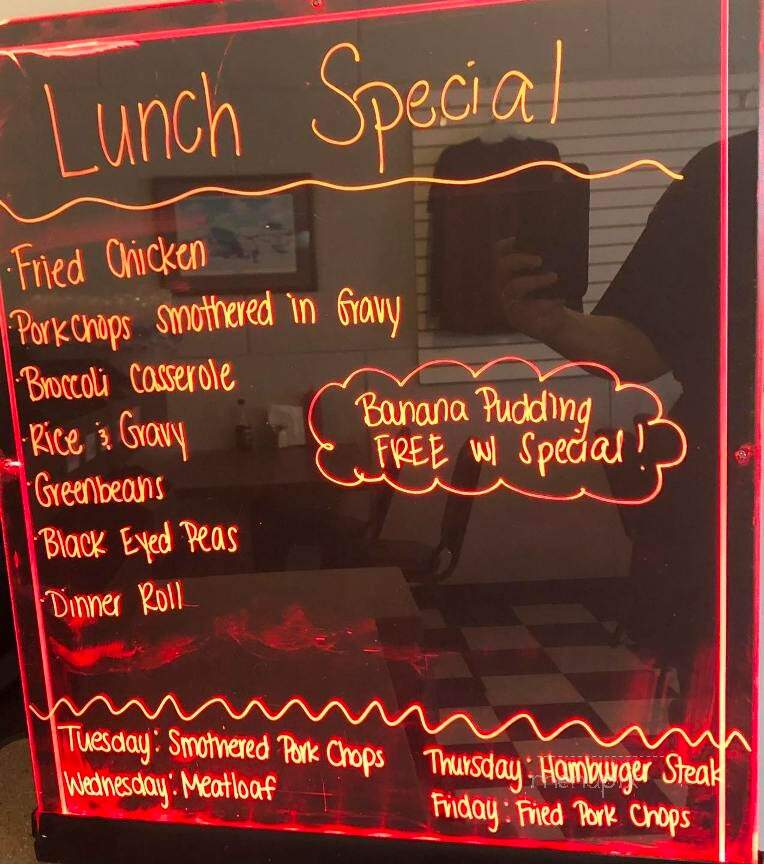 Lunch Special
Fried Chicken
Porkchops smothered in Gravy
Broccoli Casserole
Rice & Gravy
Greenbeans
Black Eyed Peas
Dinner Roll
Banana Pudding
FREE w/ Special!
Tuesday: Smothered Pork Chops
Wednesday: Meatloaf
Thursday: Hamburger Steak
Friday: Fried Pork Chops